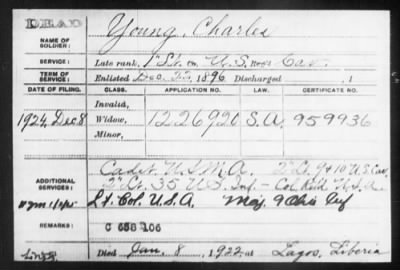 DEAD
NAME OF SOLDIER: Young, Charles
SERVICE: Late rank, 1" Lt. Co. U.S. Reg't Cav.
TERM OF SERVICE: Enlisted Dec. 22, 1896 Discharged , 1
DATE OF FILING. CLASS. APPLICATION NO. CERTIFICATE NO.
Invalid,
1924, Dec 8 Widow, 1226920 S.A. 959936
Minor,
ADDITIONAL SERVICES: Cadet U.S.M.A. 2" Lt. 9 & 10 U.S. Cav.
2" Lt. 35 U.S. Inf - Col. Ret'd U.S.A.
Lt. Col. U.S.A. Maj. 9 Ohio Inf
REMARKS: C 658 106
Died Jan. 8, 1922, at Lagos, Liberia